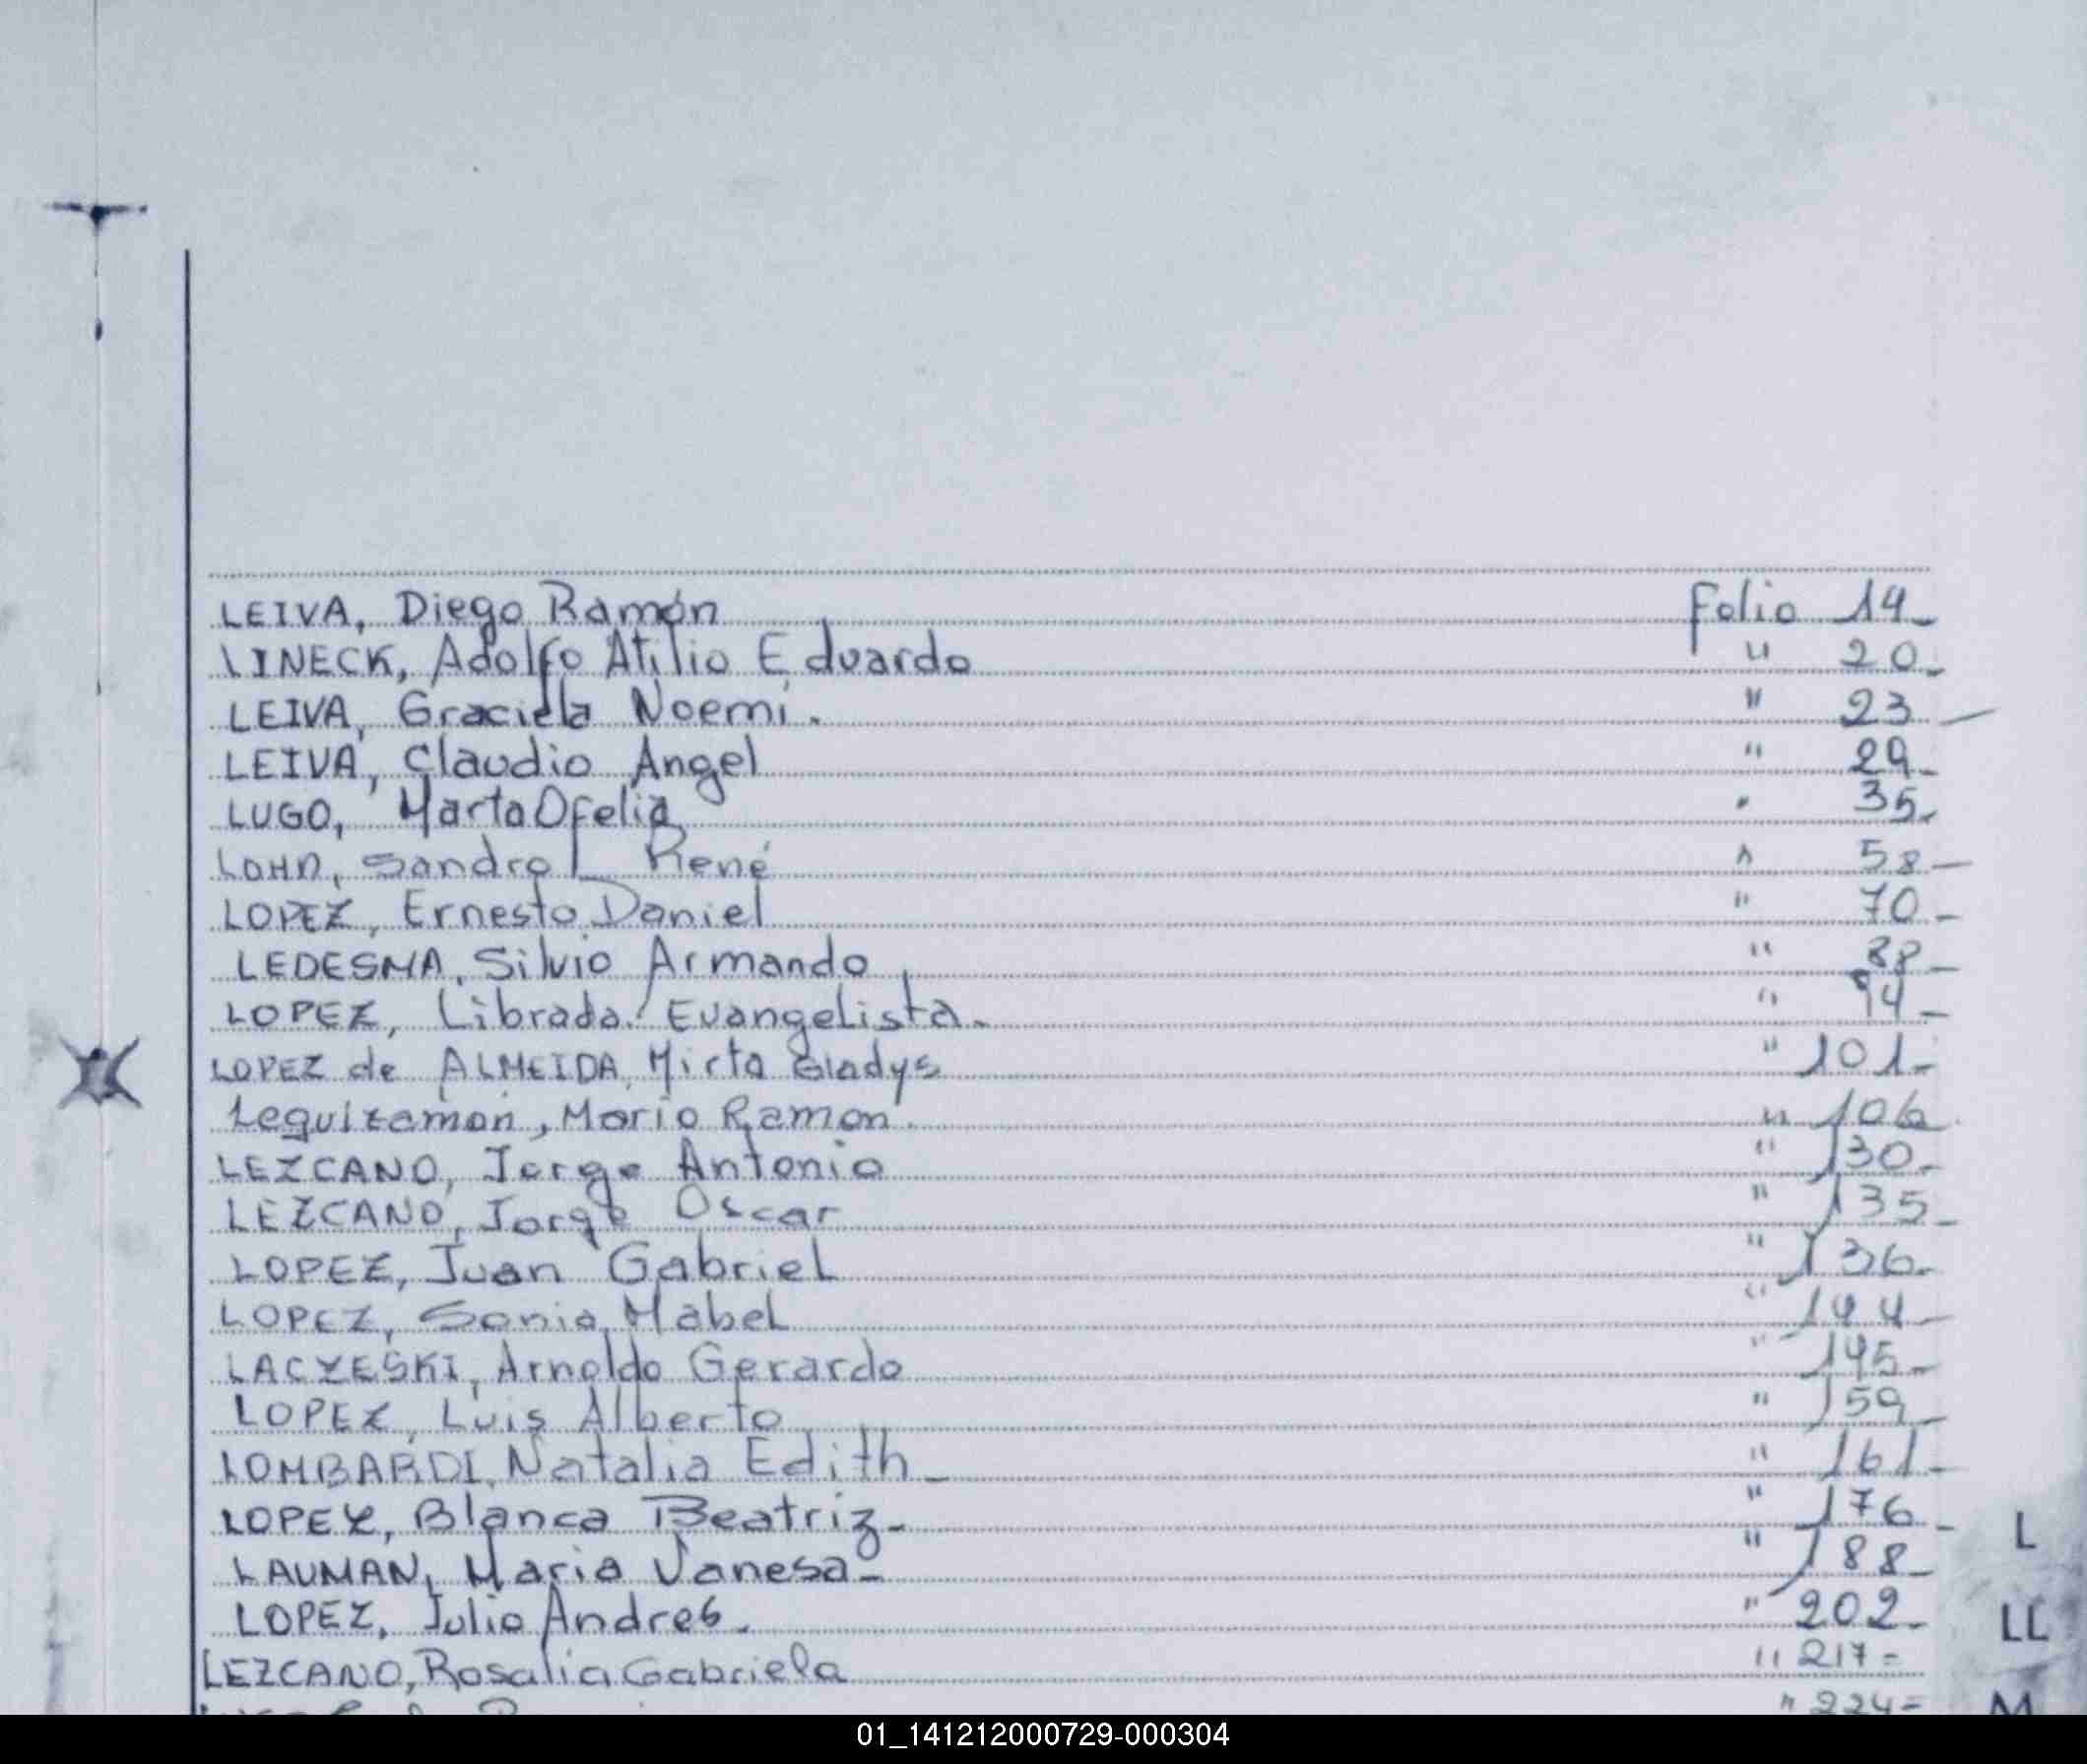 LEIVA, Diego Ramón Folio 14-
LINECK, Adolfo Atilio Eduardo " 20-
LEIVA, Graciela Noemí. " 23 -
LEIVA, Claudio Angel " 29-
LUGO, Marta Ofelia " 35-
LOHN, Sandro René " 58-
LOPEZ, Ernesto Daniel " 70-
LEDESMA, Silvio Armando " 88-
LOPEZ, Librada Evangelista. " 94-
LOPEZ de ALMEIDA, Mirta Gladys " 101-
Leguizamon, Mario Ramon. " 106
LEZCANO, Jorge Antonio " 130-
LEZCANO, Jorge Oscar " 135-
LOPEZ, Juan Gabriel " 136-
LOPEZ, Sonia Mabel " 144-
LACZESKI, Arnoldo Gerardo " 145-
LOPEZ, Luis Alberto " 159-
LOMBARDI, Natalia Edith- " 161-
LOPEZ, Blanca Beatriz- " 176-
L
LAUMAN, Maria Vanesa- " 188-
LOPEZ, Julio Andres. " 202-
LL
LEZCANO, Rosalia Gabriela " 217-
" 224-
M
01_141212000729-000304